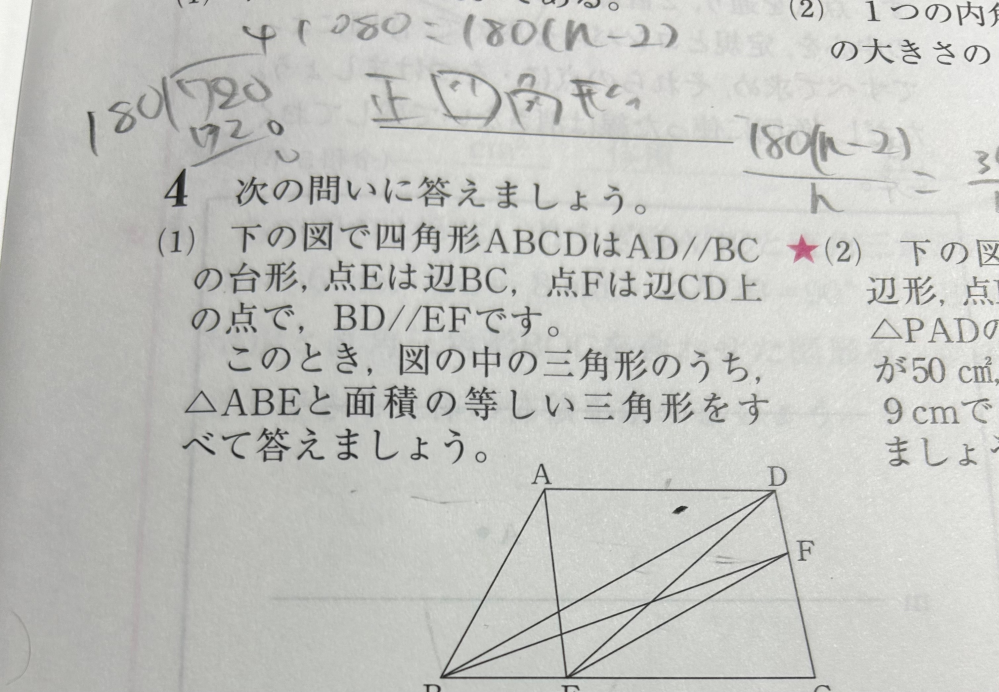 である。
(2) 1つの内角
の大きさの
1080=180(n-2)
180 720
720
0
正 角形
180(n-2)
n
=
4 次の問いに答えましょう。
(1) 下の図で四角形ABCDはAD//BC
の台形,点Eは辺BC,点Fは辺CD上
の点で,BD//EFです。
このとき,図の中の三角形のうち,
△ABEと面積の等しい三角形をす
べて答えましょう。
★(2) 下の図
辺形,点
△PADの
が50 cm²,
9cmで
ましょう
A
D
F